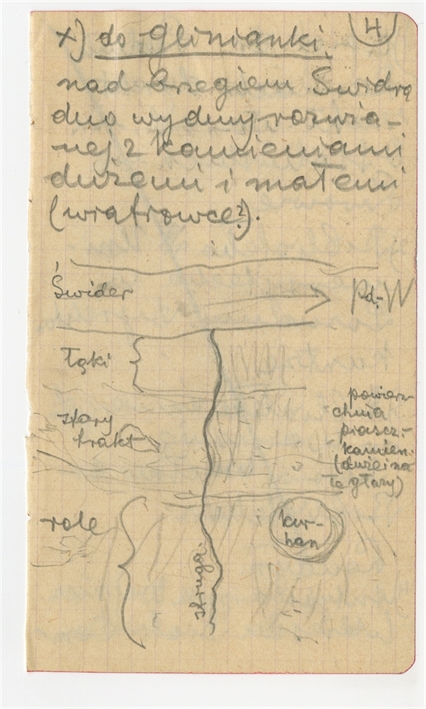 4
x) do Glinianki.
nad brzegiem Świdra
dno wydmy rozwia-
nej z kamieniami
dużemi i małemi
(wiatrowce?).
Świder
Pd.-W
łąki
stary
trakt
powierz-
chnia
piaszcz.-
kamien.
(duże
głazy)
role
struga
kur-
han